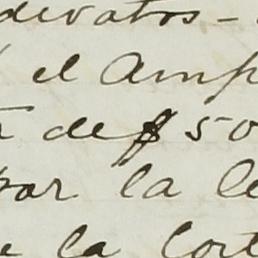 devatos -
el Amp
de $ 50
par la le
e la Cort